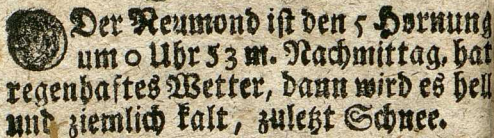 Der Neumond ist den 5 Hornung
um 0 Uhr 53 m. Nachmittag, hat
regenhaftes Wetter, dann wird es hell
und ziemlich kalt, zuletzt Schnee.